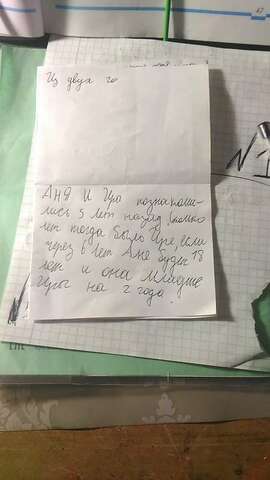 Из двух го
Аня и Ира познакоми-
лись 5 лет назад. Сколько
лет тогда было Ире, если
через 6 лет Ане будет 18
лет и она младше
Иры на 2 года.
N1